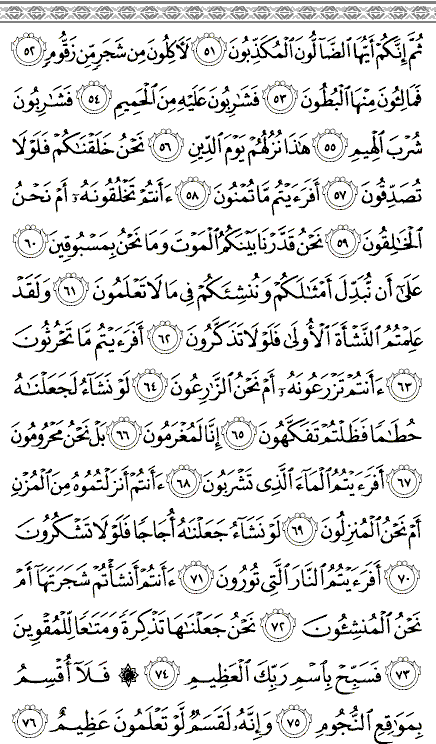 ثُمَّ إِنَّكُمْ أَيُّهَا الضَّالُّونَ الْمُكَذِّبُونَ ٥١ لَآكِلُونَ مِن شَجَرٍ مِّن زَقُّومٍ ٥٢
فَمَالِـُٔونَ مِنْهَا الْبُطُونَ ٥٣ فَشَارِبُونَ عَلَيْهِ مِنَ الْحَمِيمِ ٥٤ فَشَارِبُونَ
شُرْبَ الْهِيمِ ٥٥ هَٰذَا نُزُلُهُمْ يَوْمَ الدِّينِ ٥٦ نَحْنُ خَلَقْنَاكُمْ فَلَوْلَا
تُصَدِّقُونَ ٥٧ أَفَرَءَيْتُم مَّا تُمْنُونَ ٥٨ ءَأَنتُمْ تَخْلُقُونَهُۥ أَمْ نَحْنُ
الْخَالِقُونَ ٥٩ نَحْنُ قَدَّرْنَا بَيْنَكُمُ الْمَوْتَ وَمَا نَحْنُ بِمَسْبُوقِينَ ٦٠
عَلَىٰٓ أَن نُّبَدِّلَ أَمْثَٰلَكُمْ وَنُنشِئَكُمْ فِى مَا لَا تَعْلَمُونَ ٦١ وَلَقَدْ
عَلِمْتُمُ النَّشْأَةَ الْأُولَىٰ فَلَوْلَا تَذَكَّرُونَ ٦٢ أَفَرَءَيْتُم مَّا تَحْرُثُونَ
٦٣ ءَأَنتُمْ تَزْرَعُونَهُۥٓ أَمْ نَحْنُ الزَّارِعُونَ ٦٤ لَوْ نَشَآءُ لَجَعَلْنَاهُ
حُطَامًا فَظَلْتُمْ تَفَكَّهُونَ ٦٥ إِنَّا لَمُغْرَمُونَ ٦٦ بَلْ نَحْنُ مَحْرُومُونَ
٦٧ أَفَرَءَيْتُمُ الْمَآءَ الَّذِى تَشْرَبُونَ ٦٨ ءَأَنتُمْ أَنزَلْتُمُوهُ مِنَ الْمُزْنِ
أَمْ نَحْنُ الْمُنزِلُونَ ٦٩ لَوْ نَشَآءُ جَعَلْنَاهُ أُجَاجًا فَلَوْلَا تَشْكُرُونَ
٧٠ أَفَرَءَيْتُمُ النَّارَ الَّتِى تُورُونَ ٧١ ءَأَنتُمْ أَنشَأْتُمْ شَجَرَتَهَآ أَمْ
نَحْنُ الْمُنشِـُٔونَ ٧٢ نَحْنُ جَعَلْنَاهَا تَذْكِرَةً وَمَتَاعًا لِّلْمُقْوِينَ
٧٣ فَسَبِّحْ بِاسْمِ رَبِّكَ الْعَظِيمِ ٧٤ ۞ فَلَآ أُقْسِمُ
بِمَوَاقِعِ النُّجُومِ ٧٥ وَإِنَّهُۥ لَقَسَمٌ لَّوْ تَعْلَمُونَ عَظِيمٌ ٧٦